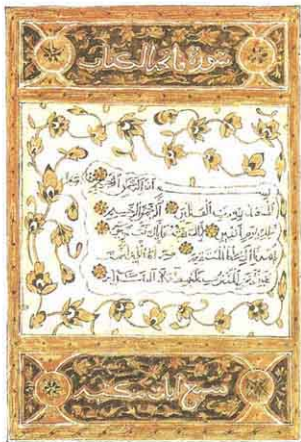 سورة فاتحة الكتاب
بسم الله الرحمن الرحيم
لله رب العالمين الرحمن الرحيم
ملك يوم الدين إياك نعبد وإياك
اهدنا الصراط المستقيم صراط الذين
غير المغضوب عليهم ولا الضالين
سبع آيات مكية